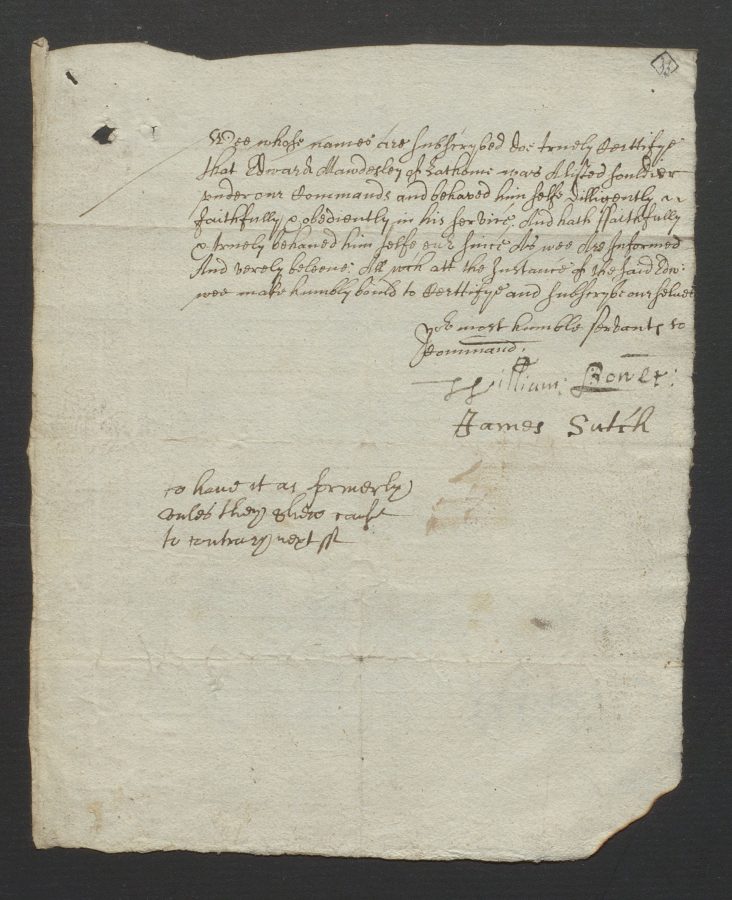 Wee whose names are subscrybed doe truely Certtifye
that Edward Mawdesley of Lathome was A listed souldier
under our Commands and behaved him selfe dilligently
faithfully & obediently in his service, And hath ffaithfully
& truely behaued him selfe eur since As wee Are Informed
And verely beleeue; All wch att the Instance of the said Edw:
wee make humbly bould to Certtifye and subscrybe our selues
yor most humble servants to
Command,
William: Bower:
James Sutch
to haue it as formerly
vnles they shew cause
to contrary next ss